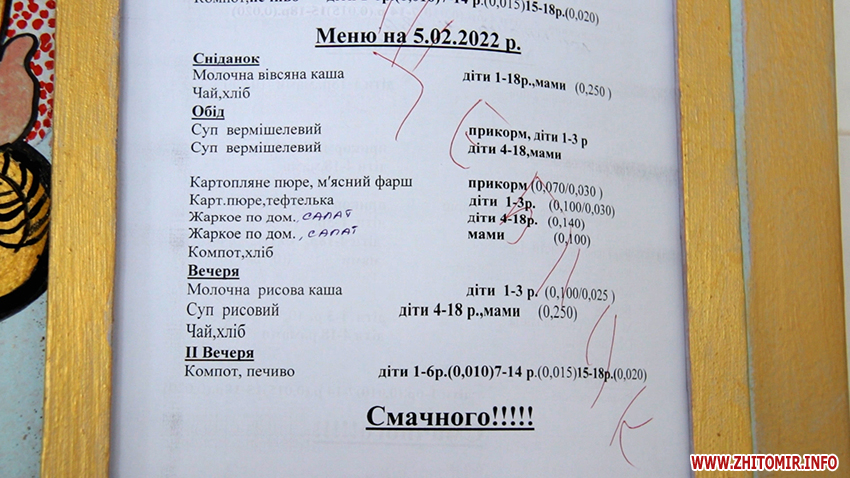 Меню на 5.02.2022 р.
Сніданок
Молочна вівсяна каша діти 1-18р.,мами (0,250 )
Чай,хліб
Обід
Суп вермішелевий прикорм, діти 1-3 р
Суп вермішелевий діти 4-18,мами
Картопляне пюре, м'ясний фарш прикорм (0,070/0,030 )
Карт.пюре,тефтелька діти 1-3р. (0,100/0,030)
Жаркое по дом., салат діти 4-18р. (0,140)
Жаркое по дом., салат мами (0,100)
Компот,хліб
Вечеря
Молочна рисова каша діти 1-3 р. (0,100/0,025 )
Суп рисовий діти 4-18 р.,мами (0,250)
Чай,хліб
ІІ Вечеря
Компот, печиво діти 1-6р.(0,010)7-14 р.(0,015)15-18р.(0,020)
Смачного!!!!!
WWW.ZHITOMIR.INFO